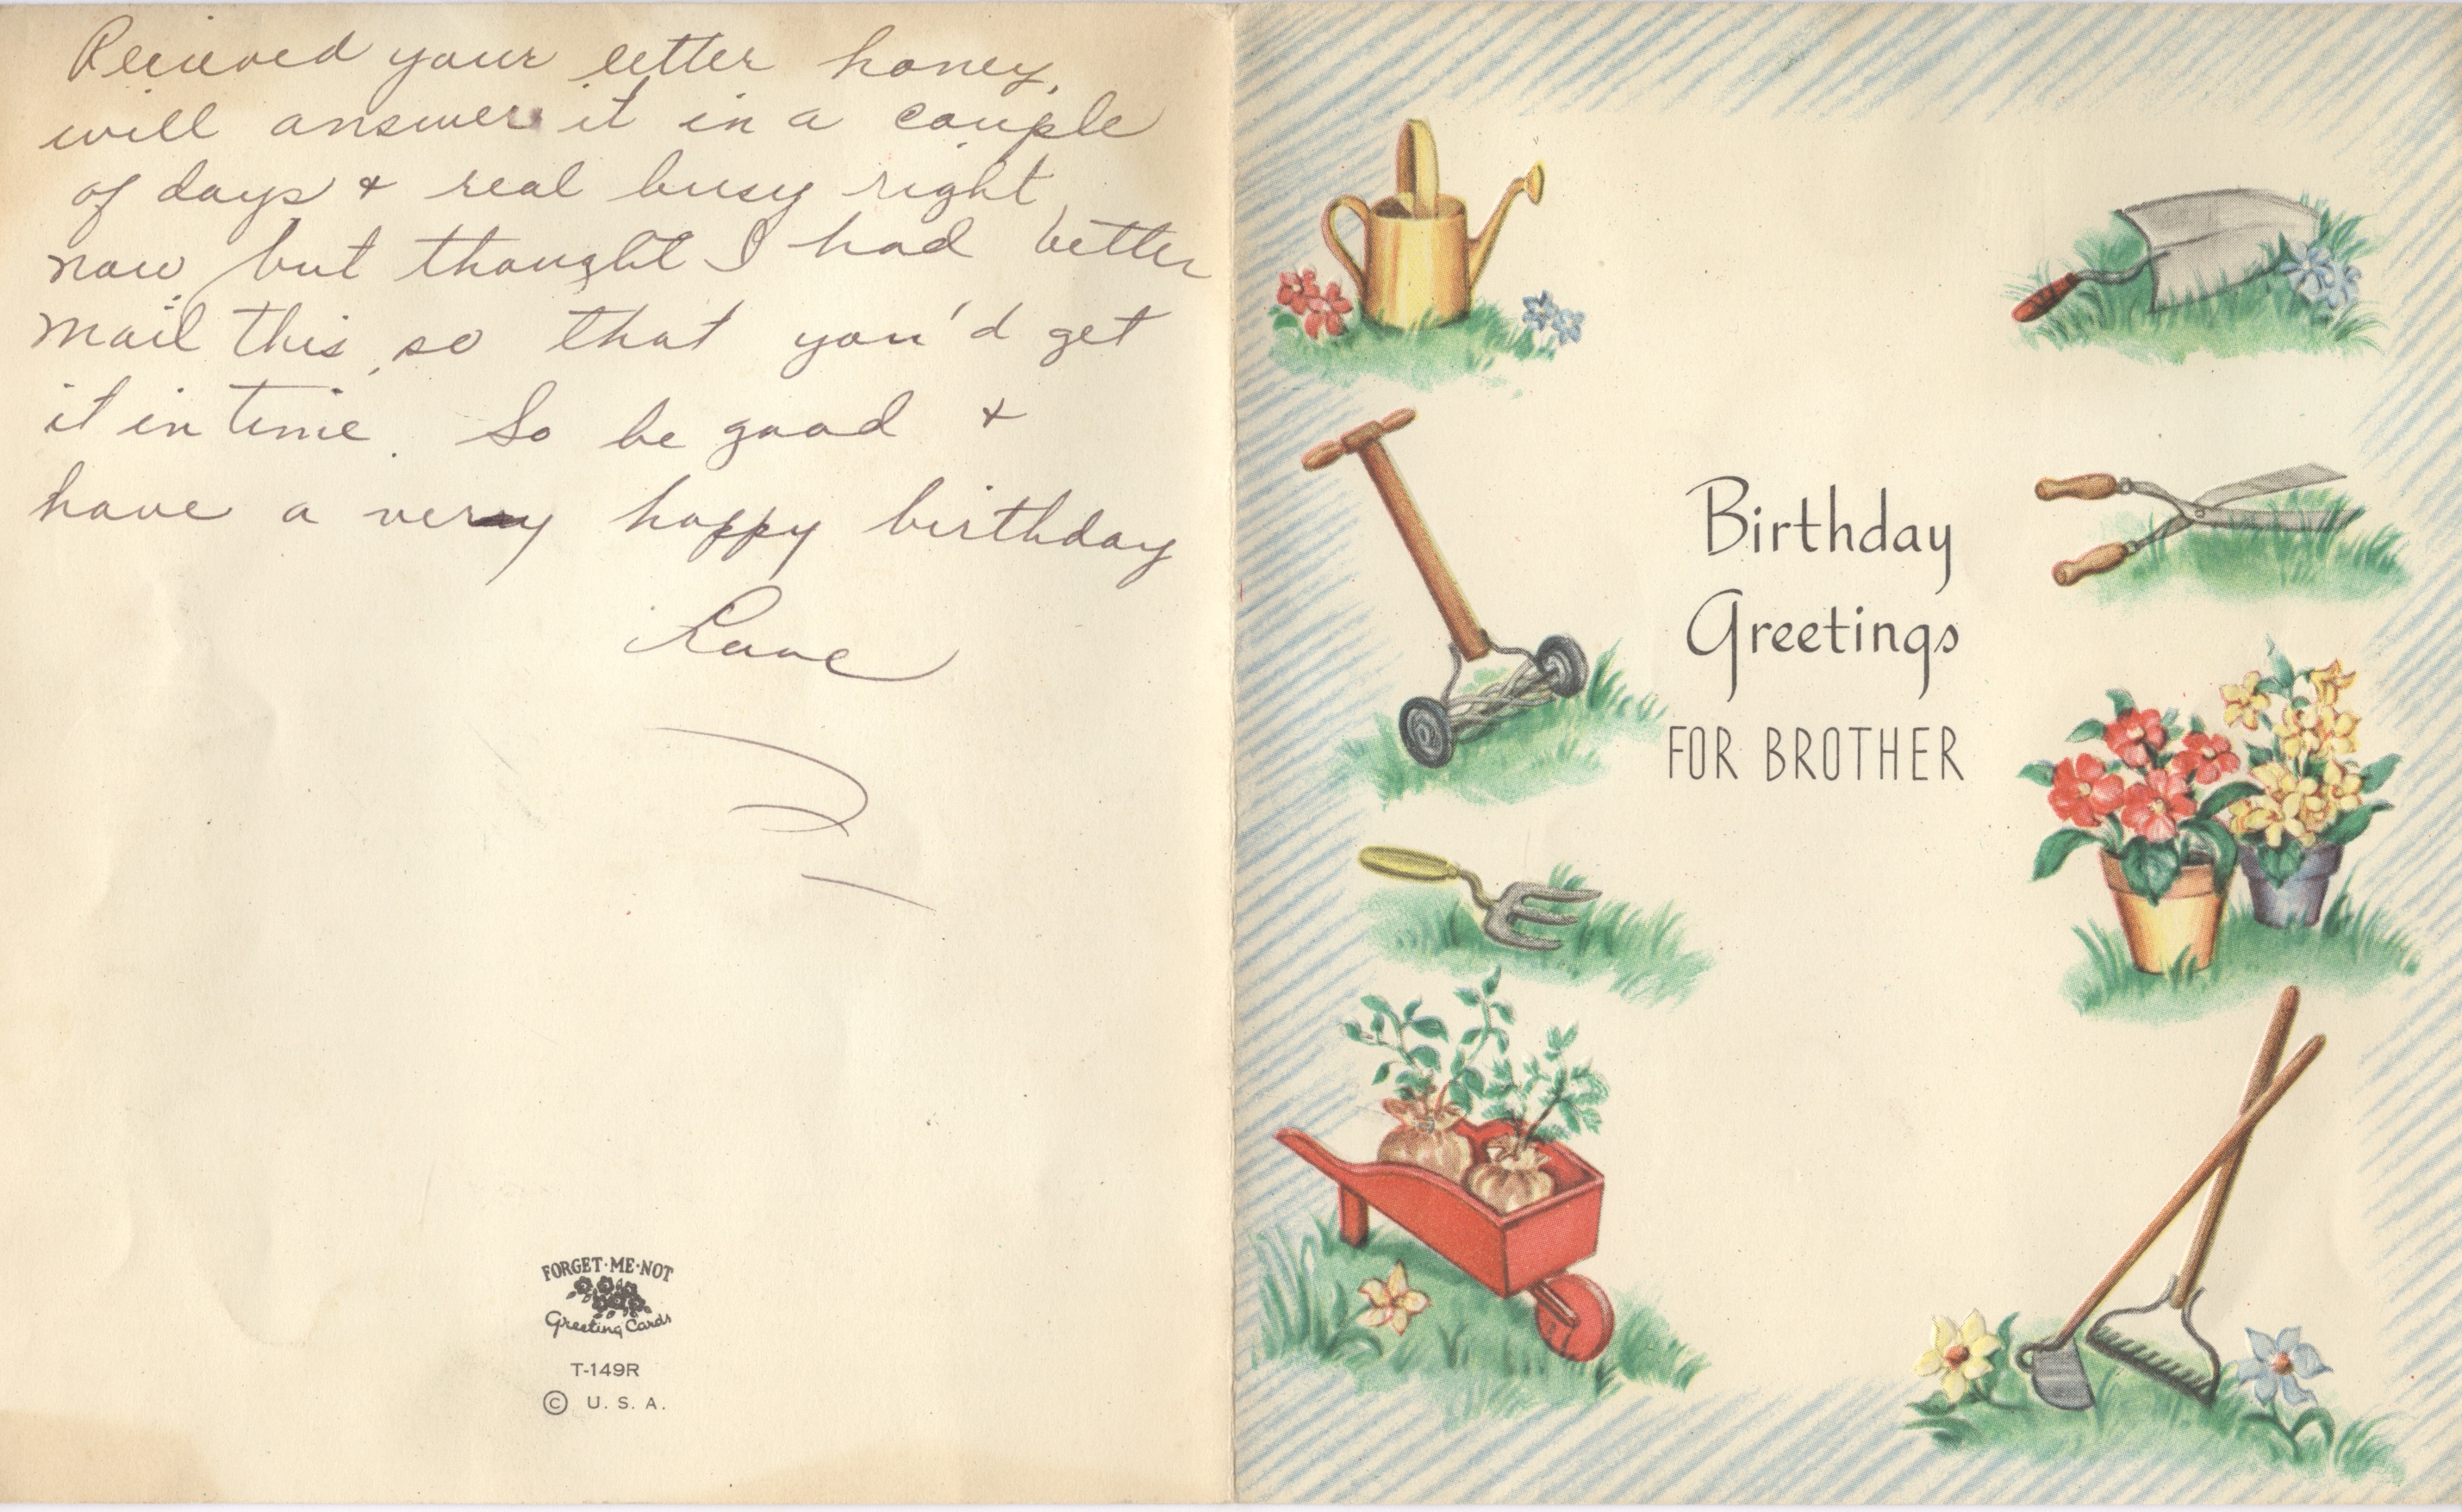 Recieved your letter honey,
will answer it in a couple
of days + real busy right
now, but thought I had better
mail this, so that you'd get
it in time. So be good +
have a very happy birthday
Love
FORGET·ME·NOT
Greeting Cards
T-149R
© U. S. A.
Birthday
Greetings
FOR BROTHER